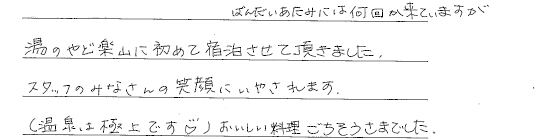 ばんだいあたみには何回か来ていますが
湯のやど楽山に初めて宿泊させて頂きました.
スタッフのみなさんの笑顔にいやされます.
(温泉は極上です♡)おいしい料理ごちそうさまでした.